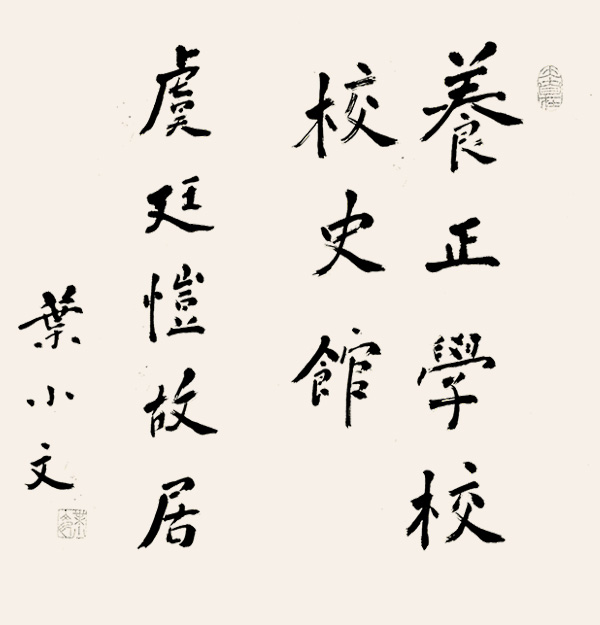 養正學校
校史館
虞廷愷故居
葉小文